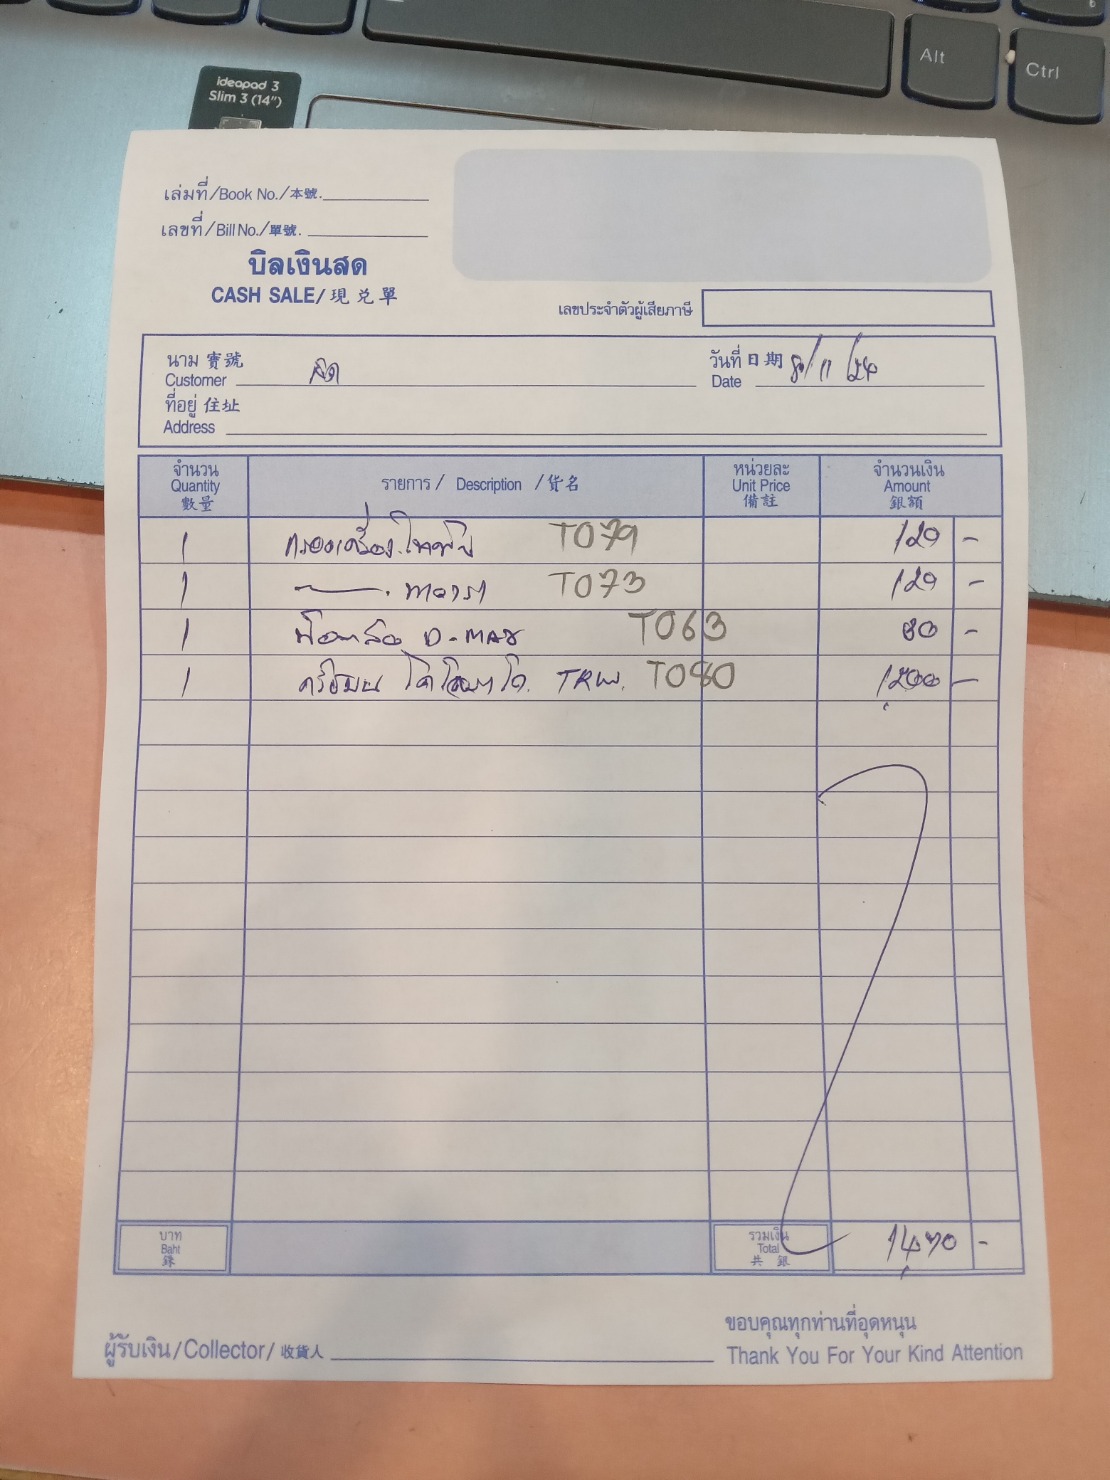 Alt
Ctrl
ideapad 3
Slim 3 (14")
เล่มที่/Book No./本號.
เลขที่/Bill No./單號.
บิลเงินสด
CASH SALE/現兑單
เลขประจำตัวผู้เสียภาษี
นาม 寶號
Customer
วันที่ 日期 8/11/24
Date
ที่อยู่ 住址
Address
จำนวน รายการ / Description / 貨名 หน่วยละ จำนวนเงิน
Quantity Unit Price Amount
數量 備註 銀額
1 กรองเครื่อง T079 120 -
1 T073 120 -
1 D-MAX T063 80 -
1 TRW. T080 1,200 -
บาท รวมเงิน 1,470 -
Baht Total
銖 共 銀
ขอบคุณทุกท่านที่อุดหนุน
ผู้รับเงิน/Collector/收貨人 Thank You For Your Kind Attention